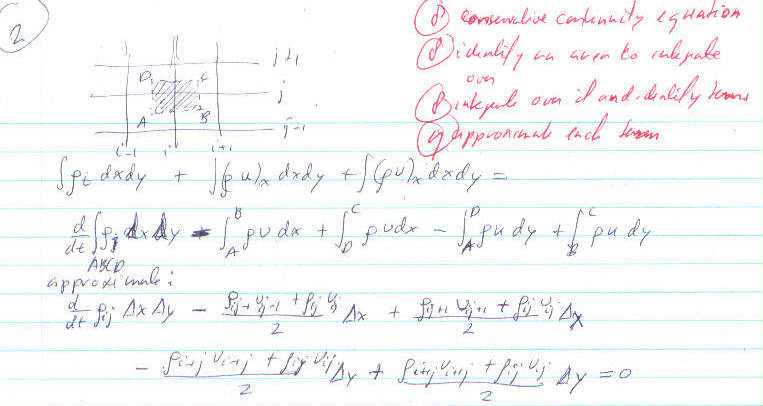 2
⑧ conservative continuity equation
⑧ identify an area to integrate
over
⑧ integrate over it and identify terms
⑨ approximate each term
D C j+1
j
A B j-1
i-1 i i+1
∫ρ_t dxdy + ∫(ρu)_x dxdy + ∫(ρu)_x dxdy =
d/dt ∫ρ_ij dxdy - ∫_A^B ρv dx + ∫_D^C ρv dx - ∫_A^D ρu dy + ∫_B^C ρu dy
ABCD
approximate:
d/dt ρ_ij Δx Δy - (ρ_ij-1 v_ij-1 + ρ_ij v_ij)/2 Δx + (ρ_ij+1 v_ij+1 + ρ_ij v_ij)/2 Δx
- (ρ_i-1j u_i-1j + ρ_ij u_ij)/2 Δy + (ρ_i+1j u_i+1j + ρ_ij u_ij)/2 Δy = 0